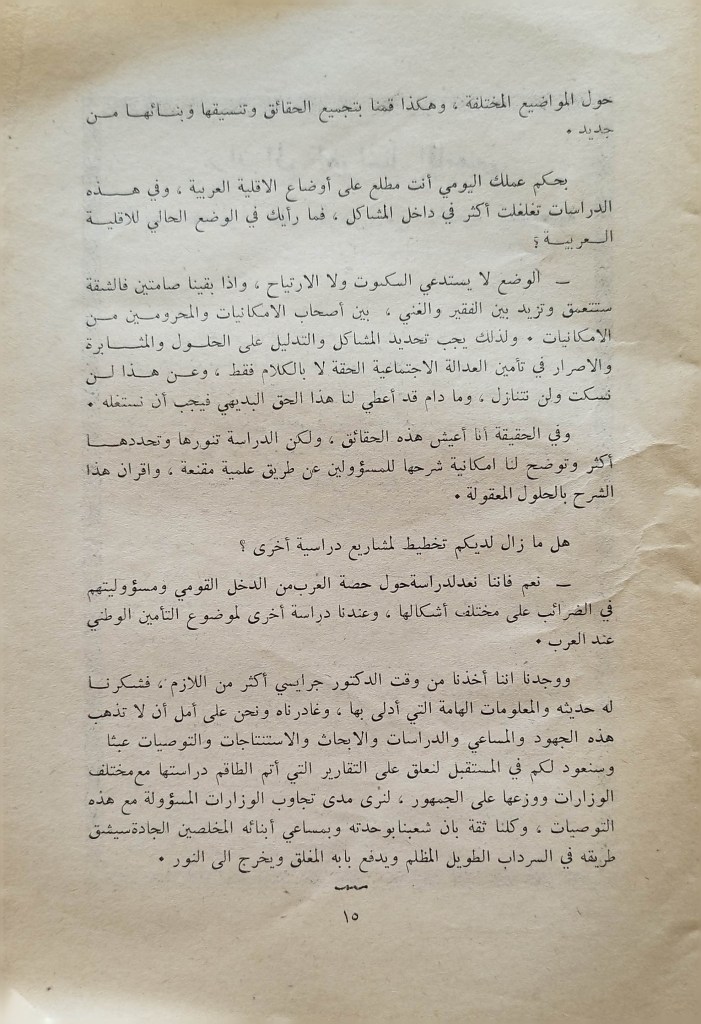 حول المواضيع المختلفة ، وهكذا قمنا بتجميع الحقائق وتنسيقها وبنائها من
جديد ٠
بحكم عملك اليومي أنت مطلع على أوضاع الاقلية العربية ، وفي هذه
الدراسات تغلغلت أكثر في داخل المشاكل ، فما رأيك في الوضع الحالي للاقلية
العربية ؟
ــ الوضع لا يستدعي السكوت ولا الارتياح ، واذا بقينا صامتين فالشقة
ستتعمق وتزيد بين الفقير والغني ، بين أصحاب الامكانيات والمحرومين من
الامكانيات ٠ ولذلك يجب تحديد المشاكل والتدليل على الحلول والمثابرة
والاصرار في تأمين العدالة الاجتماعية الحقة لا بالكلام فقط ، وعن هذا لن
نسكت ولن نتنازل ، وما دام قد أعطي لنا هذا الحق البديهي فيجب أن نستغله ٠
وفي الحقيقة أنا أعيش هذه الحقائق ، ولكن الدراسة تنورها وتحددها
أكثر وتوضح لنا امكانية شرحها للمسؤولين عن طريق علمية مقنعة ، واقران هذا
الشرح بالحلول المعقولة ٠
هل ما زال لديكم تخطيط لمشاريع دراسية أخرى ؟
ــ نعم فاننا نعدلدراسةحول حصة العرب‌من الدخل القومي ومسؤوليتهم
في الضرائب على مختلف أشكالها ، وعندنا دراسة أخرى لموضوع التأمين الوطني
عند العرب ٠
ووجدنا اننا أخذنا من وقت الدكتور جرايسي أكثر من اللازم ، فشكرنا
له حديثه والمعلومات الهامة التي أدلى بها ، وغادرناه ونحن على أمل أن لا تذهب
هذه الجهود والمساعي والدراسات والابحاث والاستنتاجات والتوصيات عبثا
وسنعود لكم في المستقبل لنعلق على التقارير التي أتم الطاقم دراستها مع‌مختلف
الوزارات ووزعها على الجمهور ، لنرى مدى تجاوب الوزارات المسؤولة مع هذه
التوصيات ، وكلنا ثقة بان شعبنابوحدته وبمساعي أبنائه المخلصين الجادةسيشق
طريقه في السرداب الطويل المظلم ويدفع بابه المغلق ويخرج الى النور ٠
١٥